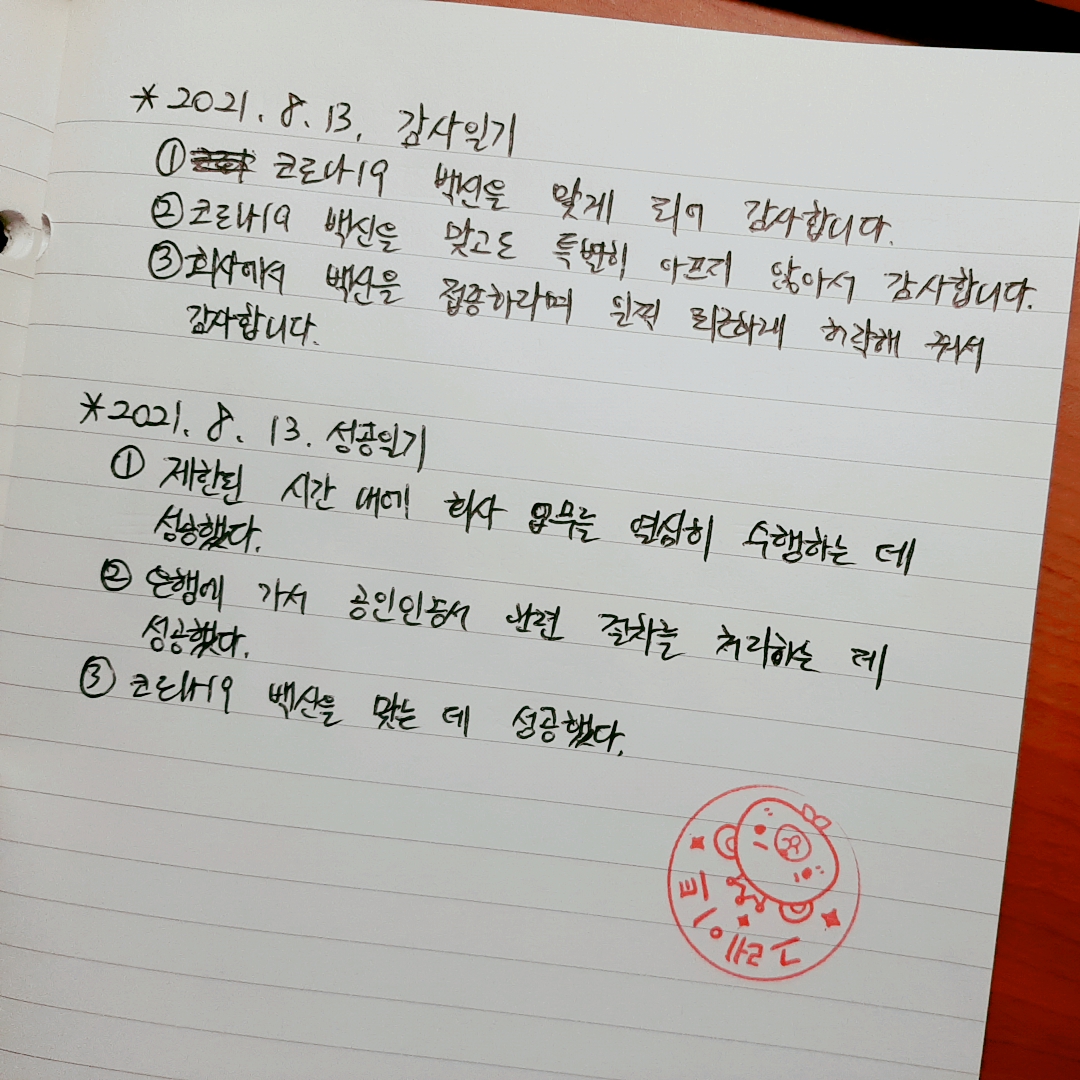 * 2021. 8. 13. 감사일기
① 코로나19 백신을 맞게 되어 감사합니다.
② 코로나19 백신을 맞고도 특별히 아프지 않아서 감사합니다.
③ 회사에서 백신을 접종하라며 일찍 퇴근하게 허락해 줘서
감사합니다.
* 2021. 8. 13. 성공일기
① 제한된 시간 내에 회사 업무를 열심히 수행하는 데
성공했다.
② 은행에 가서 공인인증서 관련 절차를 처리하는 데
성공했다.
③ 코로나19 백신을 맞는 데 성공했다.